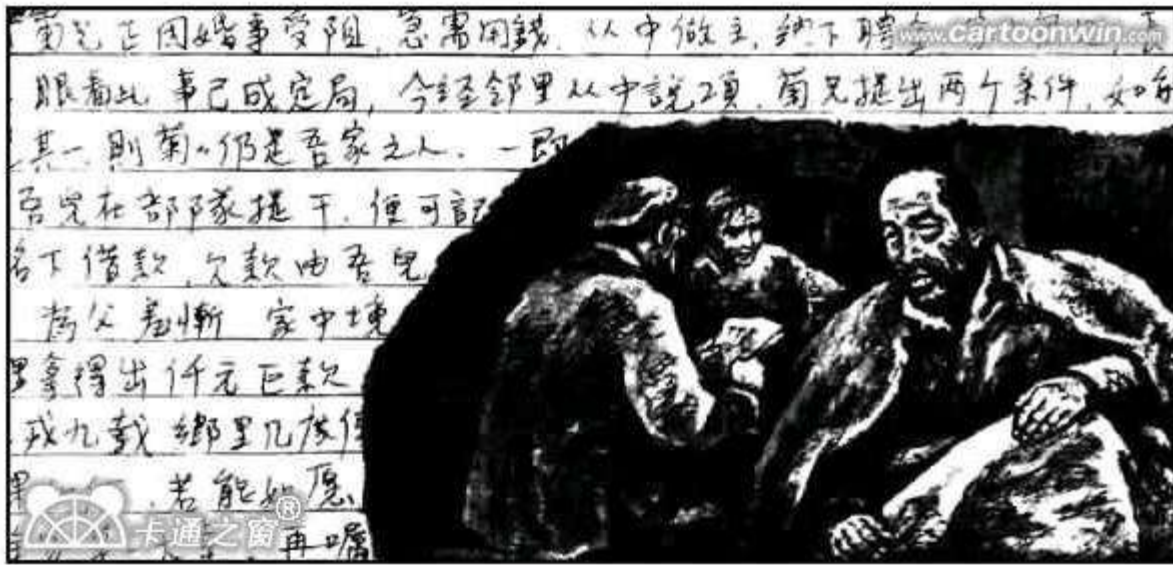 菊兄正因婚事受阻，急需用錢．从中做主，納下聘
www.cartoonwin.com
眼看此事已成定局，今经邻里从中說項．菊兄提出两个条件，如
其一．則菊〃仍是吾家之人．一即
吾兒在部隊提干．便可記
名下借款，欠款由吾兒
為父羞慚 家中境
里拿得出仟元巨款
戍九載 鄉里几度
．若能如愿、
再囑
卡通之窗®